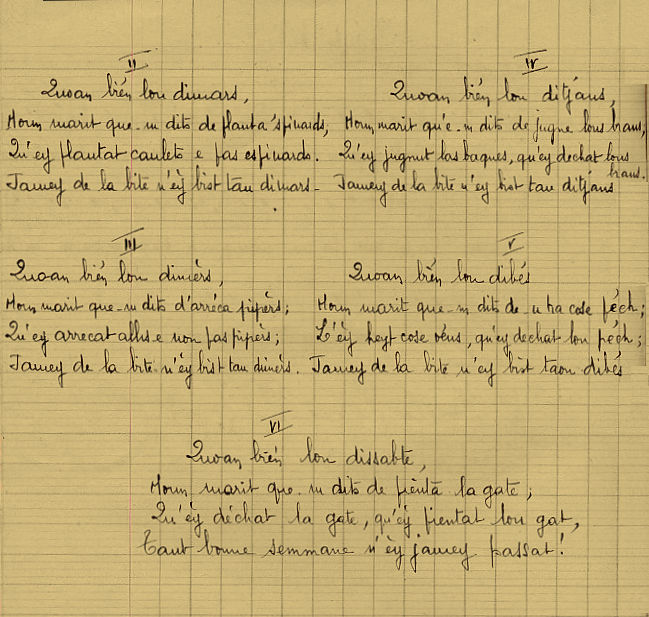 II
Quoan bién lou dimars,
Moun marit que-m dits de planta 'spinards,
Qu'ey plantat caulets e pas espinards.
Jamey de la bite n'èy bist tau dimars.
III
Quoan bién lou dimèrs,
Moun marit que-m dits d'arréca pipèrs;
Qu'ey arrecat alhs e noun pas pipèrs;
Jamey de la bite n'èy bist tau dimèrs.
IV
Quoan bién lou ditjaus,
Moun marit qu'e-m dits de jugne lous braus,
Qu'ey jugnut las baques, qu'ey dechat lous braus.
Jamey de la bite n'ey bist tau ditjaus
V
Quoan bién lou dibés
Moun marit que-m dits de-u ha cose péch;
L'èy heyt cose béus, qu'ey dechat lou péch;
Jamey de la bite n'ey bist taou dibés
VI
Quoan bién lou dissabte,
Moun marit que-m dits de pientà la gate;
Qu'èy déchat la gate, qu'èy pientat lou gat,
Tant bonne semmane n'èy jamey passat!